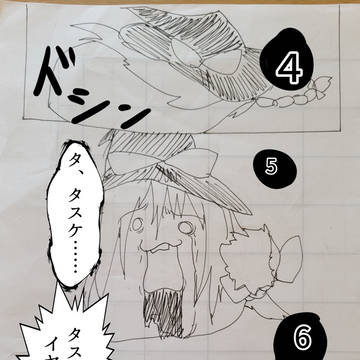 4
ドシン
5
タ、タスケ……
6
タス
イヤ